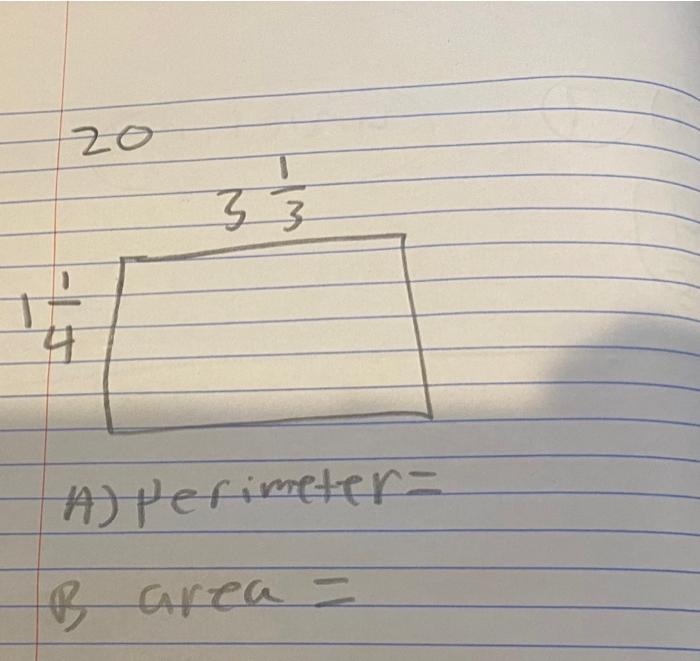 20
3 1/3
1 1/4
A) Perimeter=
B area =